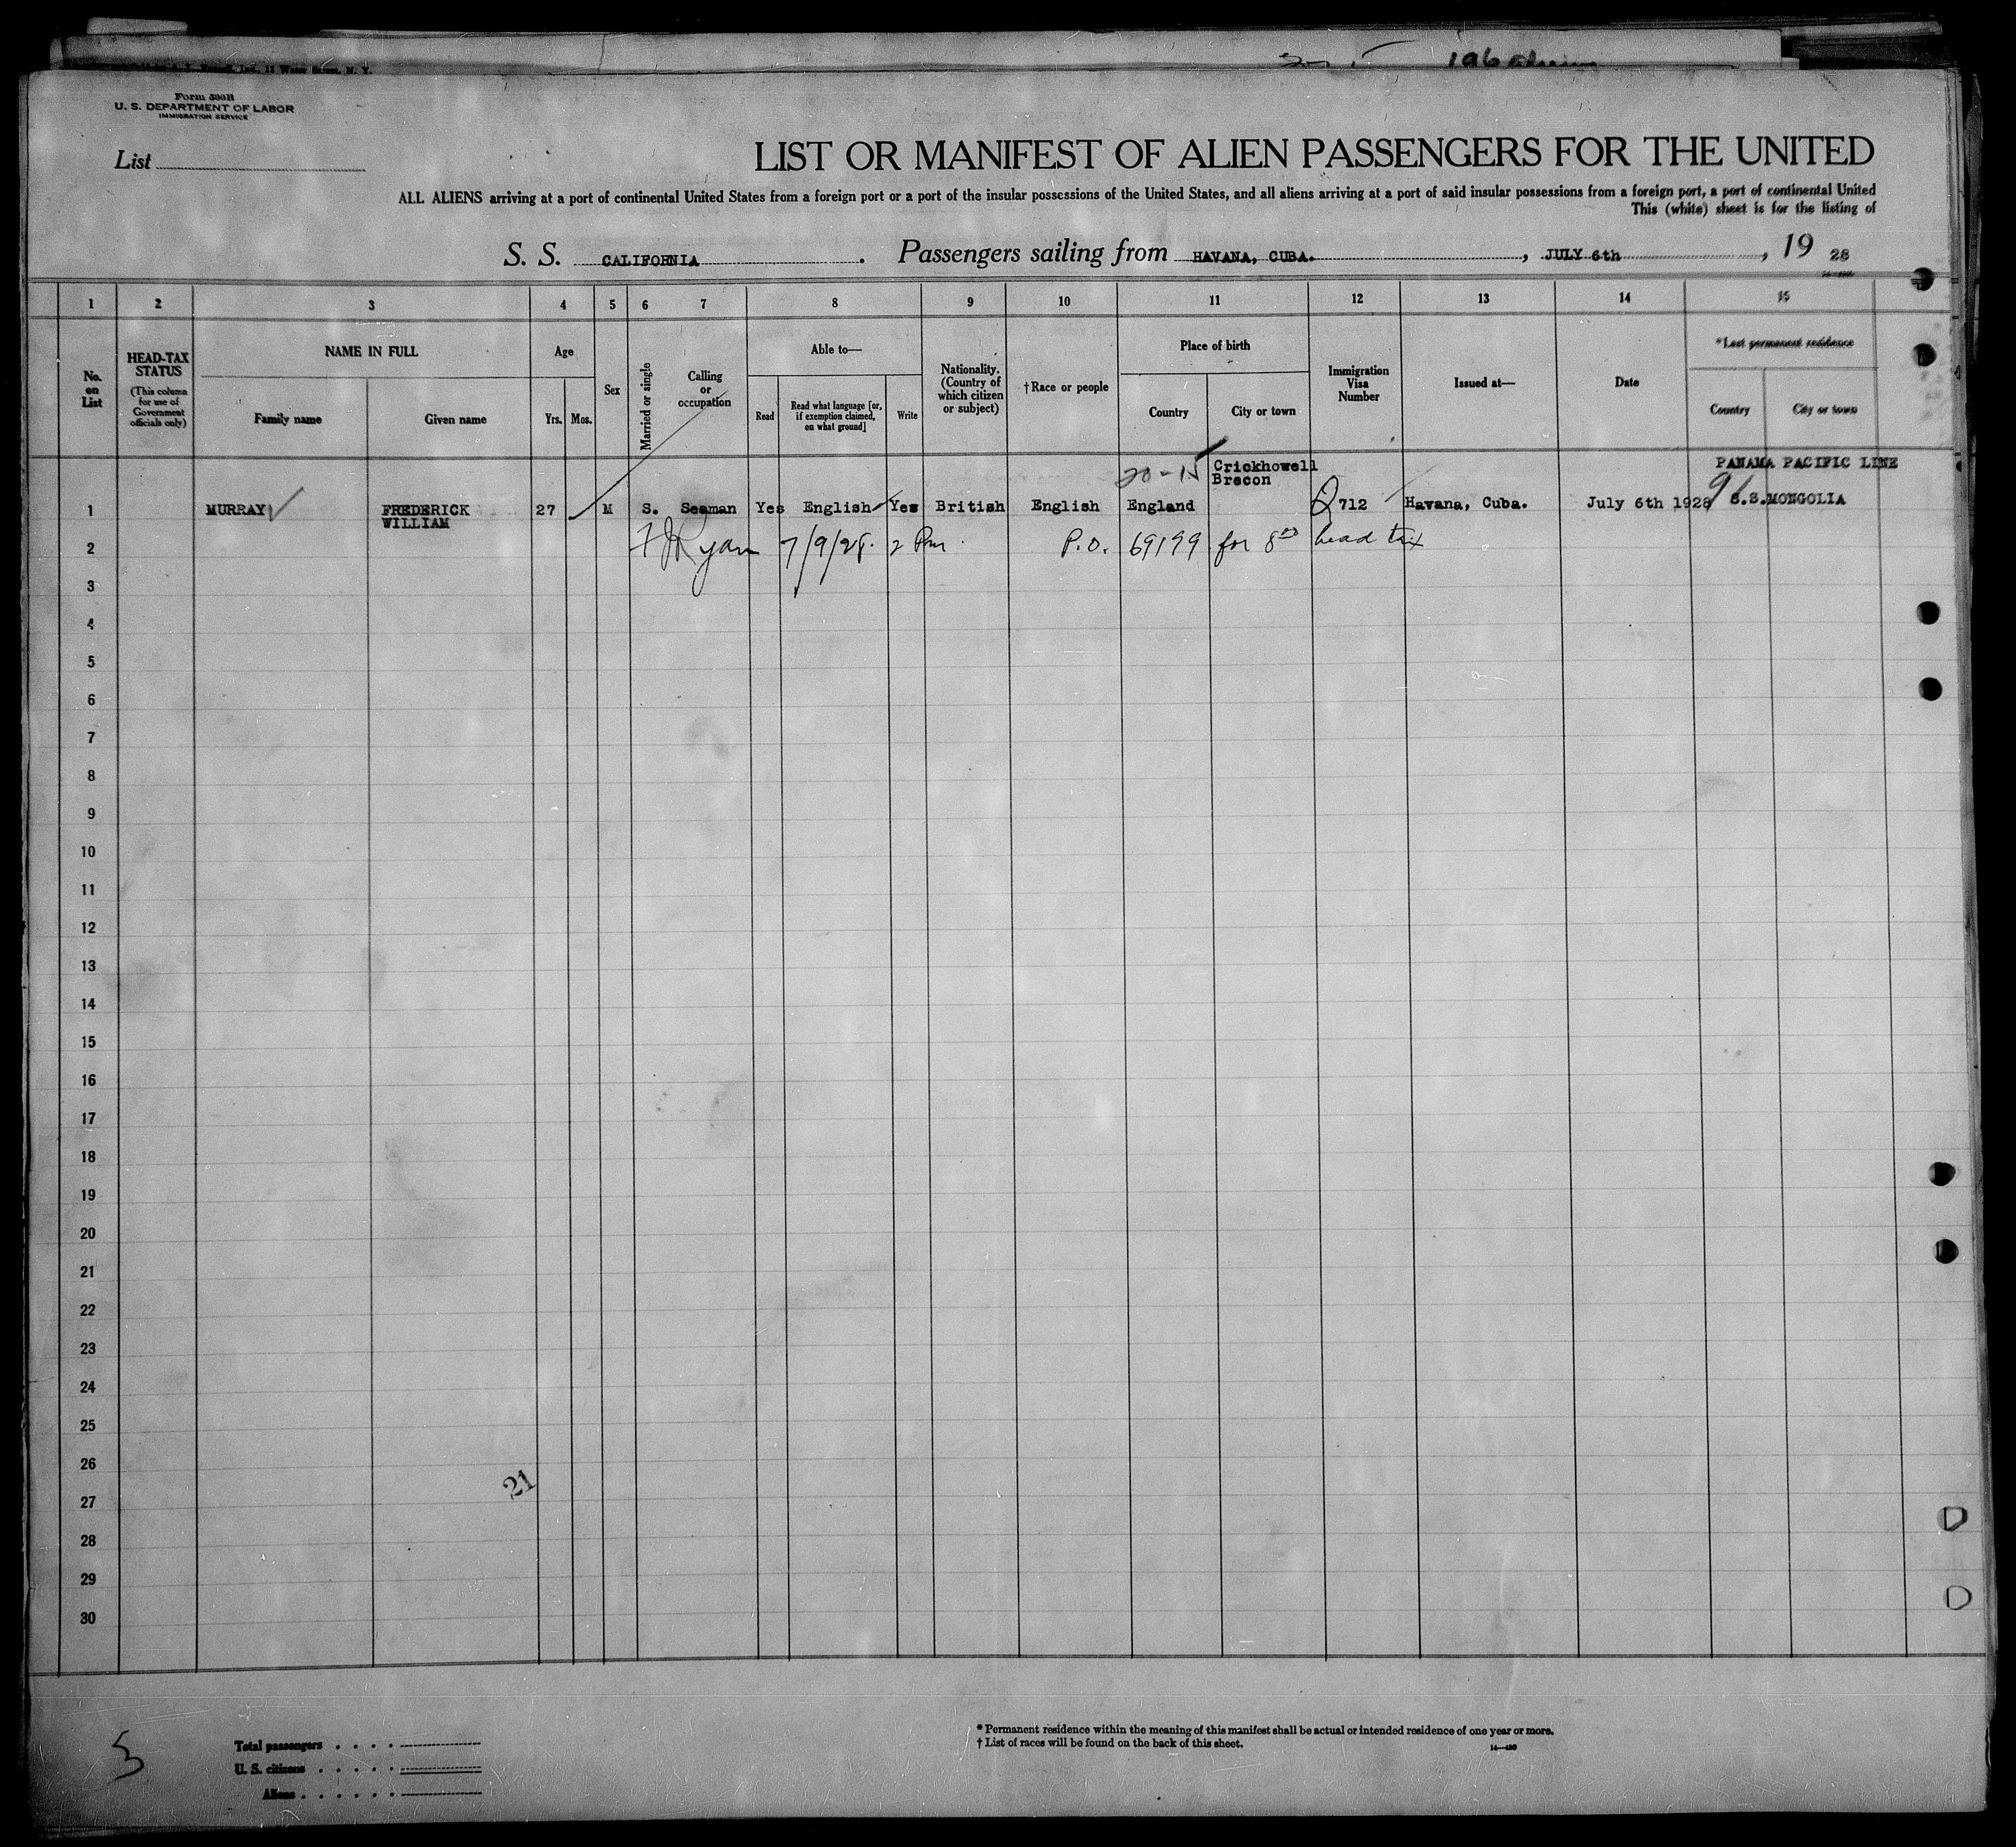 196 Aliens
Form 500B
U. S. DEPARTMENT OF LABOR
IMMIGRATION SERVICE
List
LIST OR MANIFEST OF ALIEN PASSENGERS FOR THE UNITED
ALL ALIENS arriving at a port of continental United States from a foreign port or a port of the insular possessions of the United States, and all aliens arriving at a port of said insular possessions from a foreign port, a port of continental United
This (white) sheet is for the listing of
S. S. CALIFORNIA. Passengers sailing from HAVANA, CUBA., JULY 6th, 19 28
1 2 3 4 5 6 7 8 9 10 11 12 13 14 15
No. on List
HEAD-TAX STATUS
(This column for use of Government officials only)
NAME IN FULL
Family name
Given name
Age
Yrs.
Mos.
Sex
Married or single
Calling or occupation
Able to—
Read
Read what language [or, if exemption claimed, on what ground]
Write
Nationality. (Country of which citizen or subject)
†Race or people
Place of birth
Country
City or town
Immigration Visa Number
Issued at—
Date
*Last permanent residence
Country
City or town
20-15 Crickhowell PANAMA PACIFIC LINE
Brecon
1 MURRAY FREDERICK WILLIAM 27 M S. Seaman Yes English Yes British English England Q 712 Havana, Cuba. July 6th 1928 S.S.MONGOLIA
2 Ryan 7/9/28. 2 Pm. P.O. 69199 for 8 00 head tax
3
4
5
6
7
8
9
10
11
12
13
14
15
16
17
18
19
20
21
22
23
24
25
26
21
27
28
29
30
Total passengers
U. S. citizens
Aliens
* Permanent residence within the meaning of this manifest shall be actual or intended residence of one year or more.
† List of races will be found on the back of this sheet.